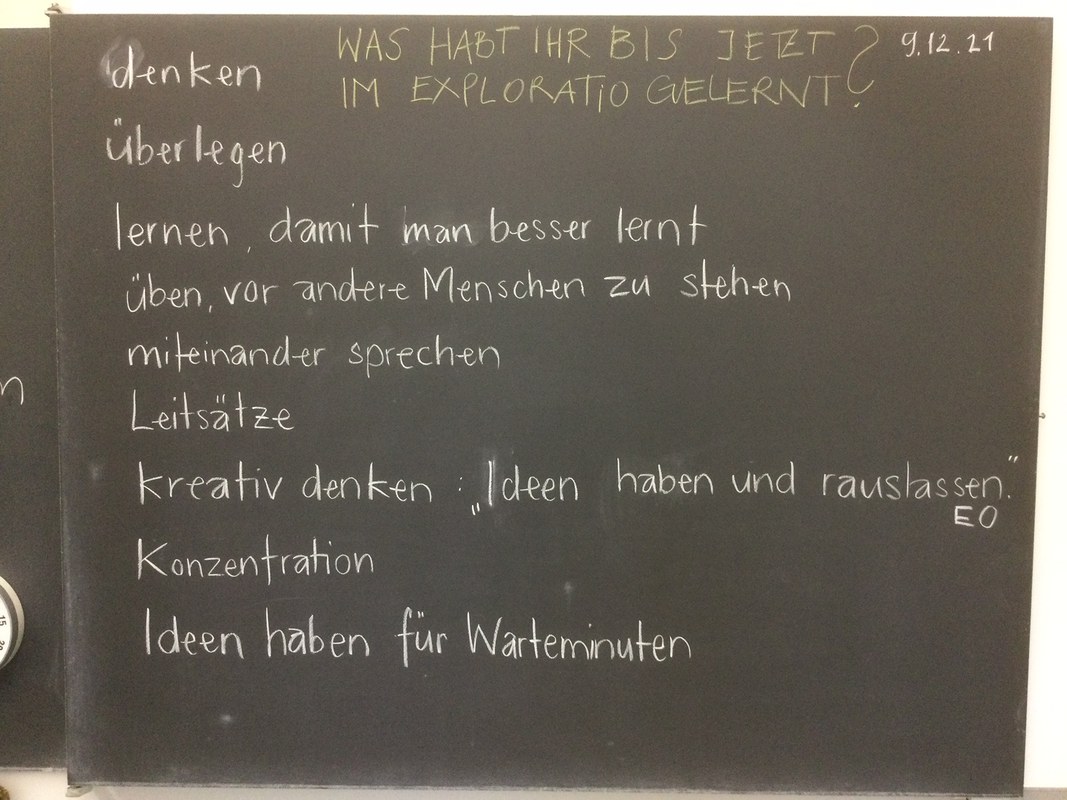 WAS HABT IHR BIS JETZT
IM EXPLORATiO GELERNT?
9.12.21
denken
überlegen
lernen, damit man besser lernt
üben, vor andere Menschen zu stehen
miteinander sprechen
Leitsätze
kreativ denken : „Ideen haben und rauslassen."
EO
Konzentration
Ideen haben für Warteminuten
n
15